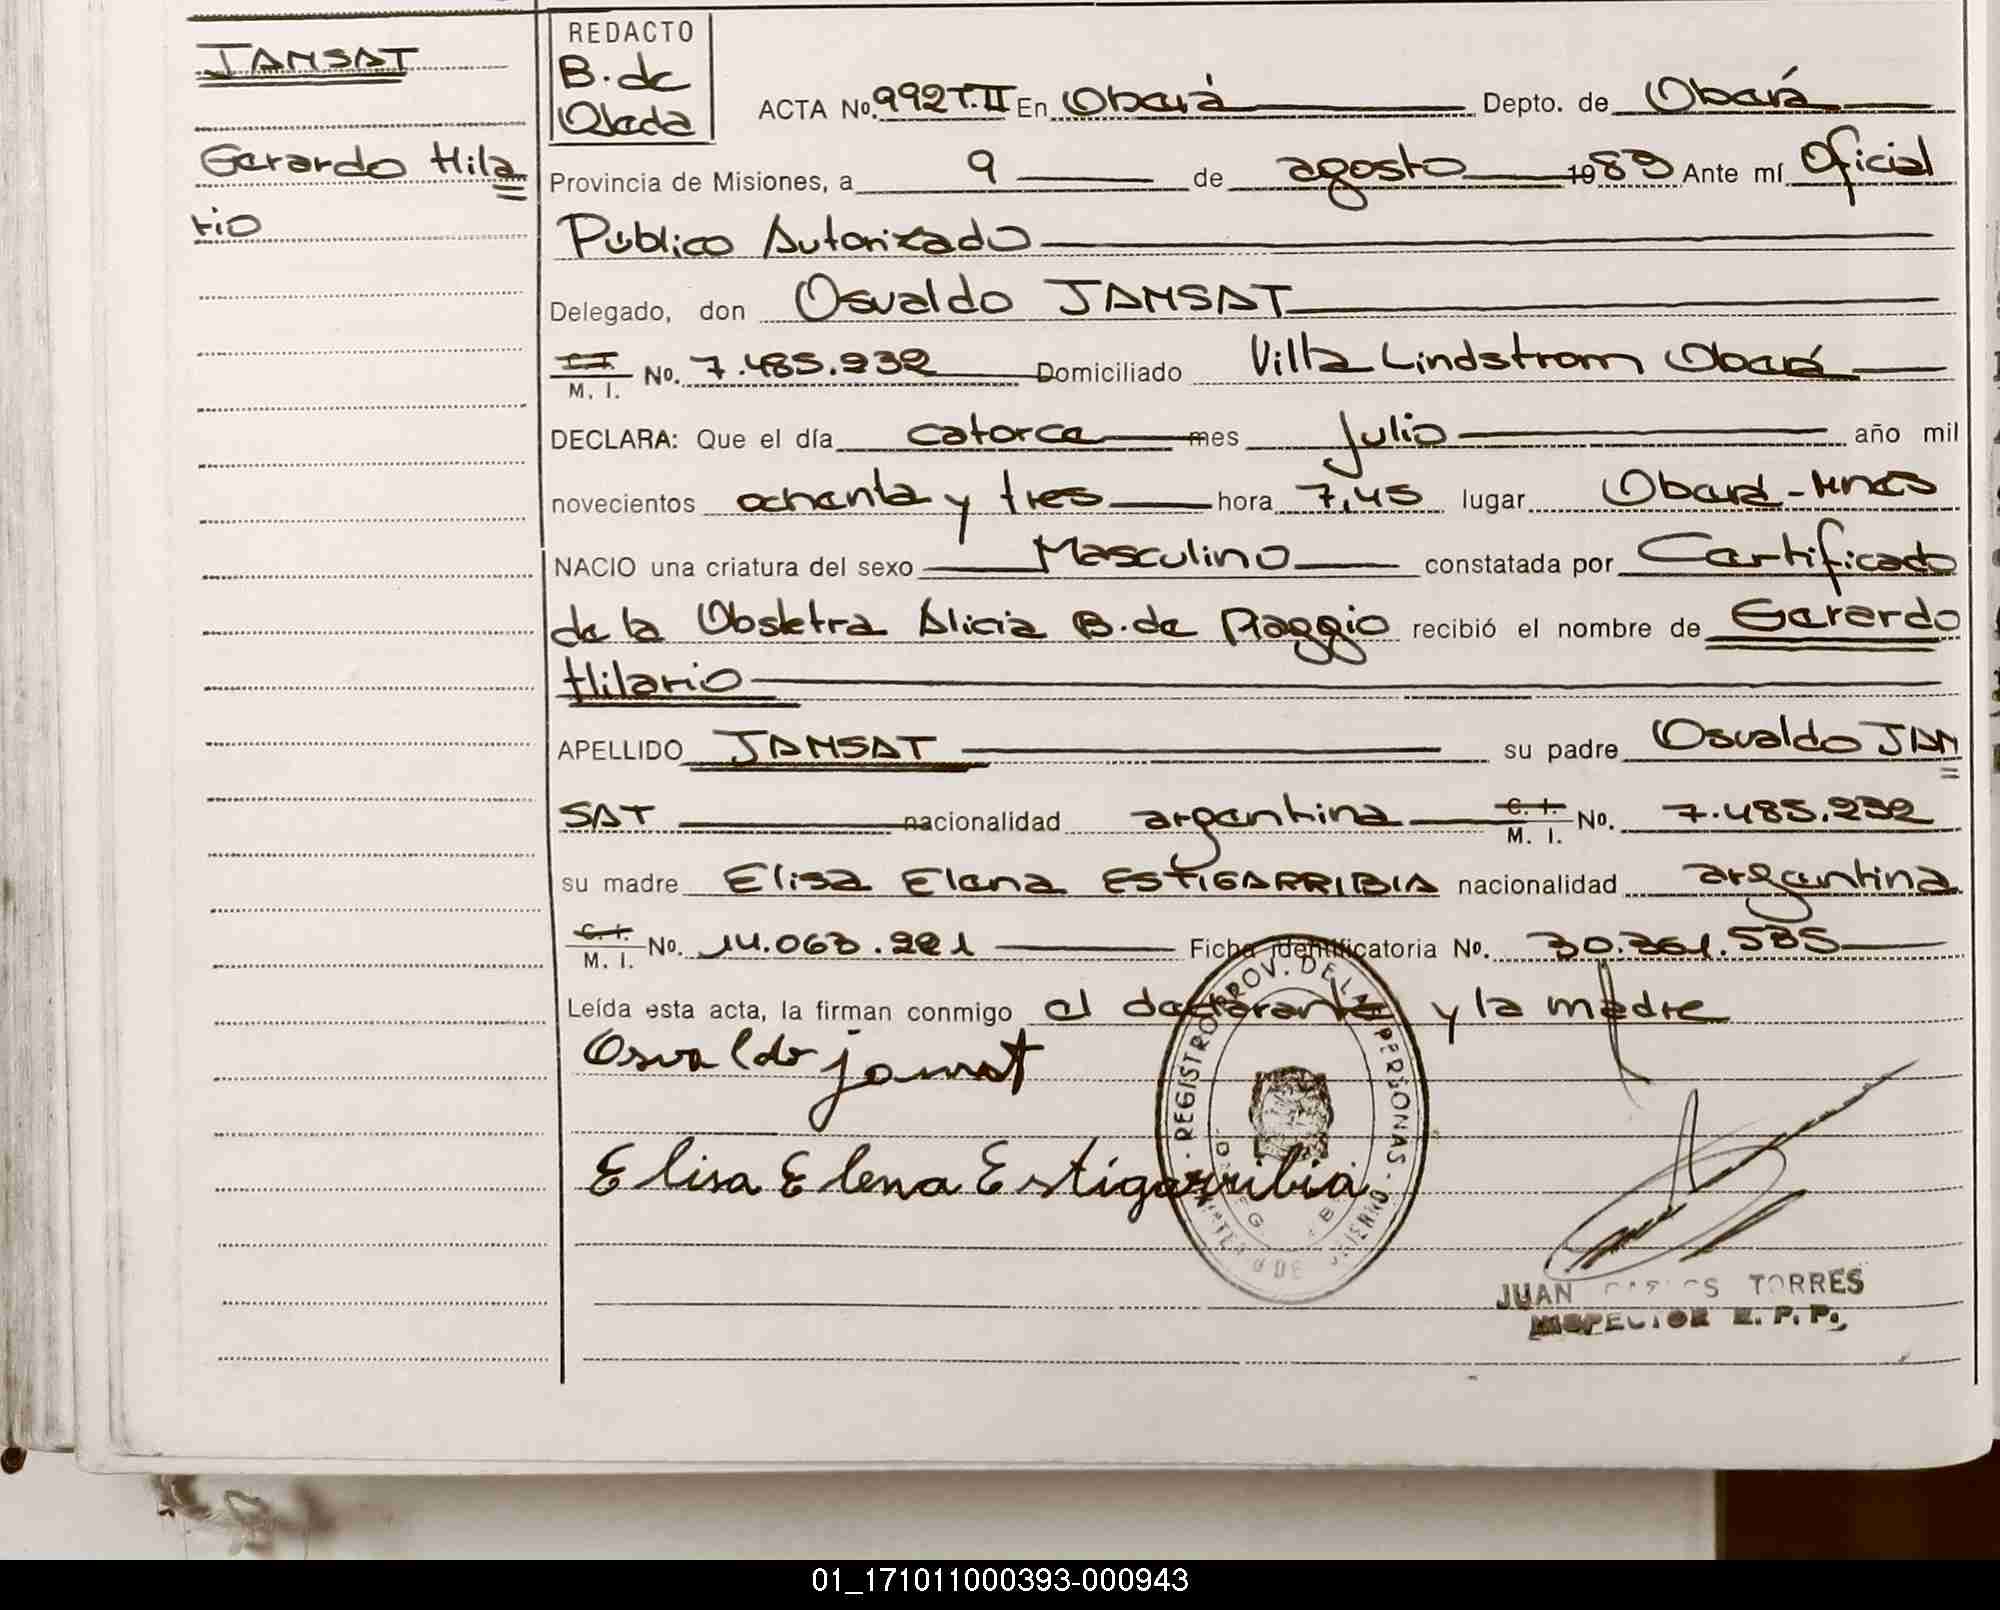 JAMSAT
Gerardo Hila
rio
REDACTO
B. de
Ojeda
ACTA No. 992 T. II En Oberá Depto. de Oberá
Provincia de Misiones, a 9 de agosto 1983 Ante mí Oficial
Público Autorizado
Delegado, don Osvaldo JAMSAT
C. I.
M. I. No. 7.485.232 Domiciliado Villa Lindstrom Oberá
DECLARA: Que el día catorce mes julio año mil
novecientos ochenta y tres hora 7,45 lugar Oberá - Mnes
NACIO una criatura del sexo Masculino constatada por Certificado
de la Obstetra Alicia B. de Piaggio recibió el nombre de Gerardo
Hilario
APELLIDO JAMSAT su padre Osvaldo JAM
SAT nacionalidad argentina C. I. M. I. No. 7.485.232
su madre Elisa Elena ESTIGARRIBIA nacionalidad argentina
C. I.
M. I. No. 14.063.221 Ficha identificatoria No. 30.361.535
Leída esta acta, la firman conmigo el declarante y la madre
Osvaldo jamsat
Elisa Elena Estigarribia
REGISTRO PROV. DE LAS PERSONAS
JUAN TORRES
INSPECTOR R. P. P.
01_171011000393-000943